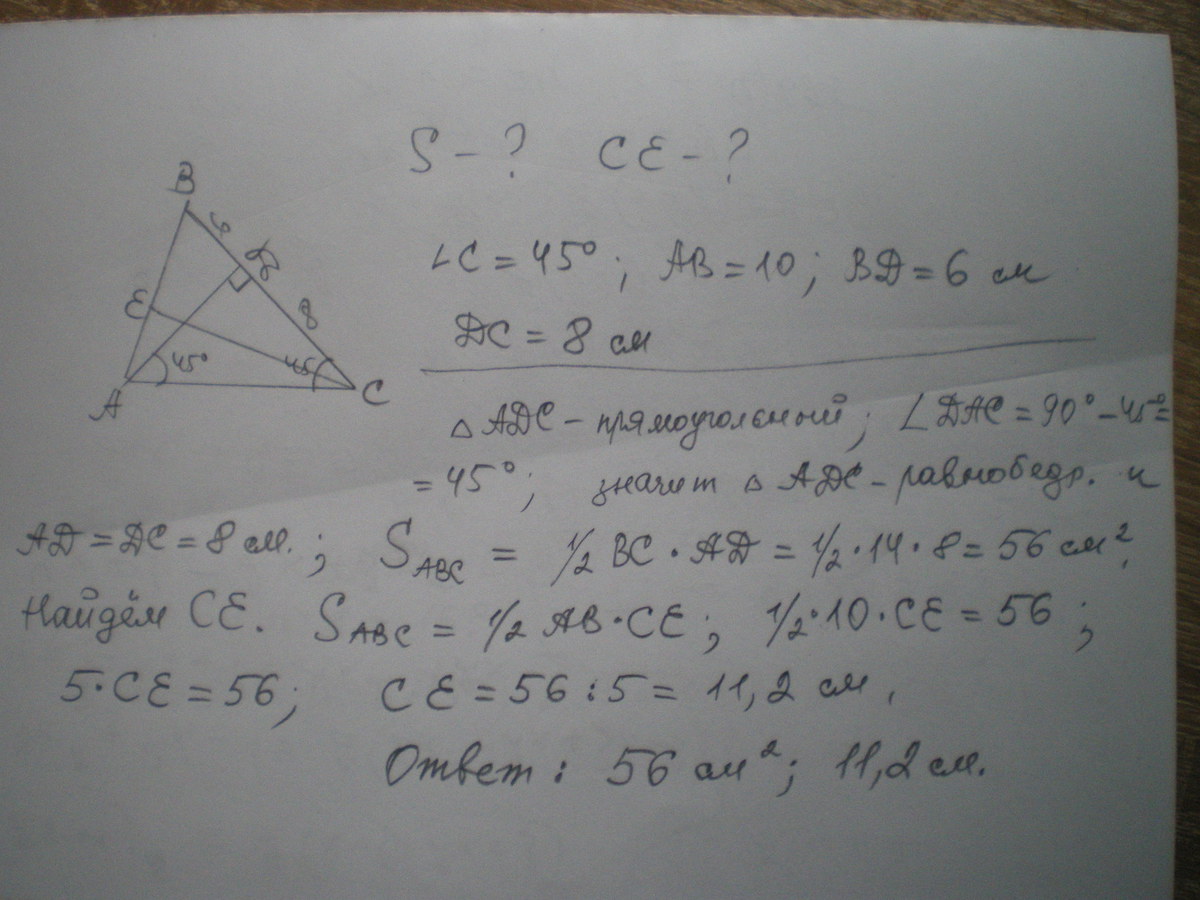 S - ? CE - ?
B
6
D
E
8
45°
45
A
C
∠C = 45°; AB = 10; BD = 6 см
DC = 8 см
△ ADC - прямоугольный; ∠DAC = 90° - 45° =
= 45°; значит △ ADC - равнобедр. и
AD = DC = 8 см.; S ABC = 1/2 BC · AD = 1/2 · 14 · 8 = 56 см²,
Найдём CE. S ABC = 1/2 AB · CE; 1/2 · 10 · CE = 56;
5 · CE = 56; CE = 56 : 5 = 11,2 см,
Ответ: 56 см²; 11,2 см.